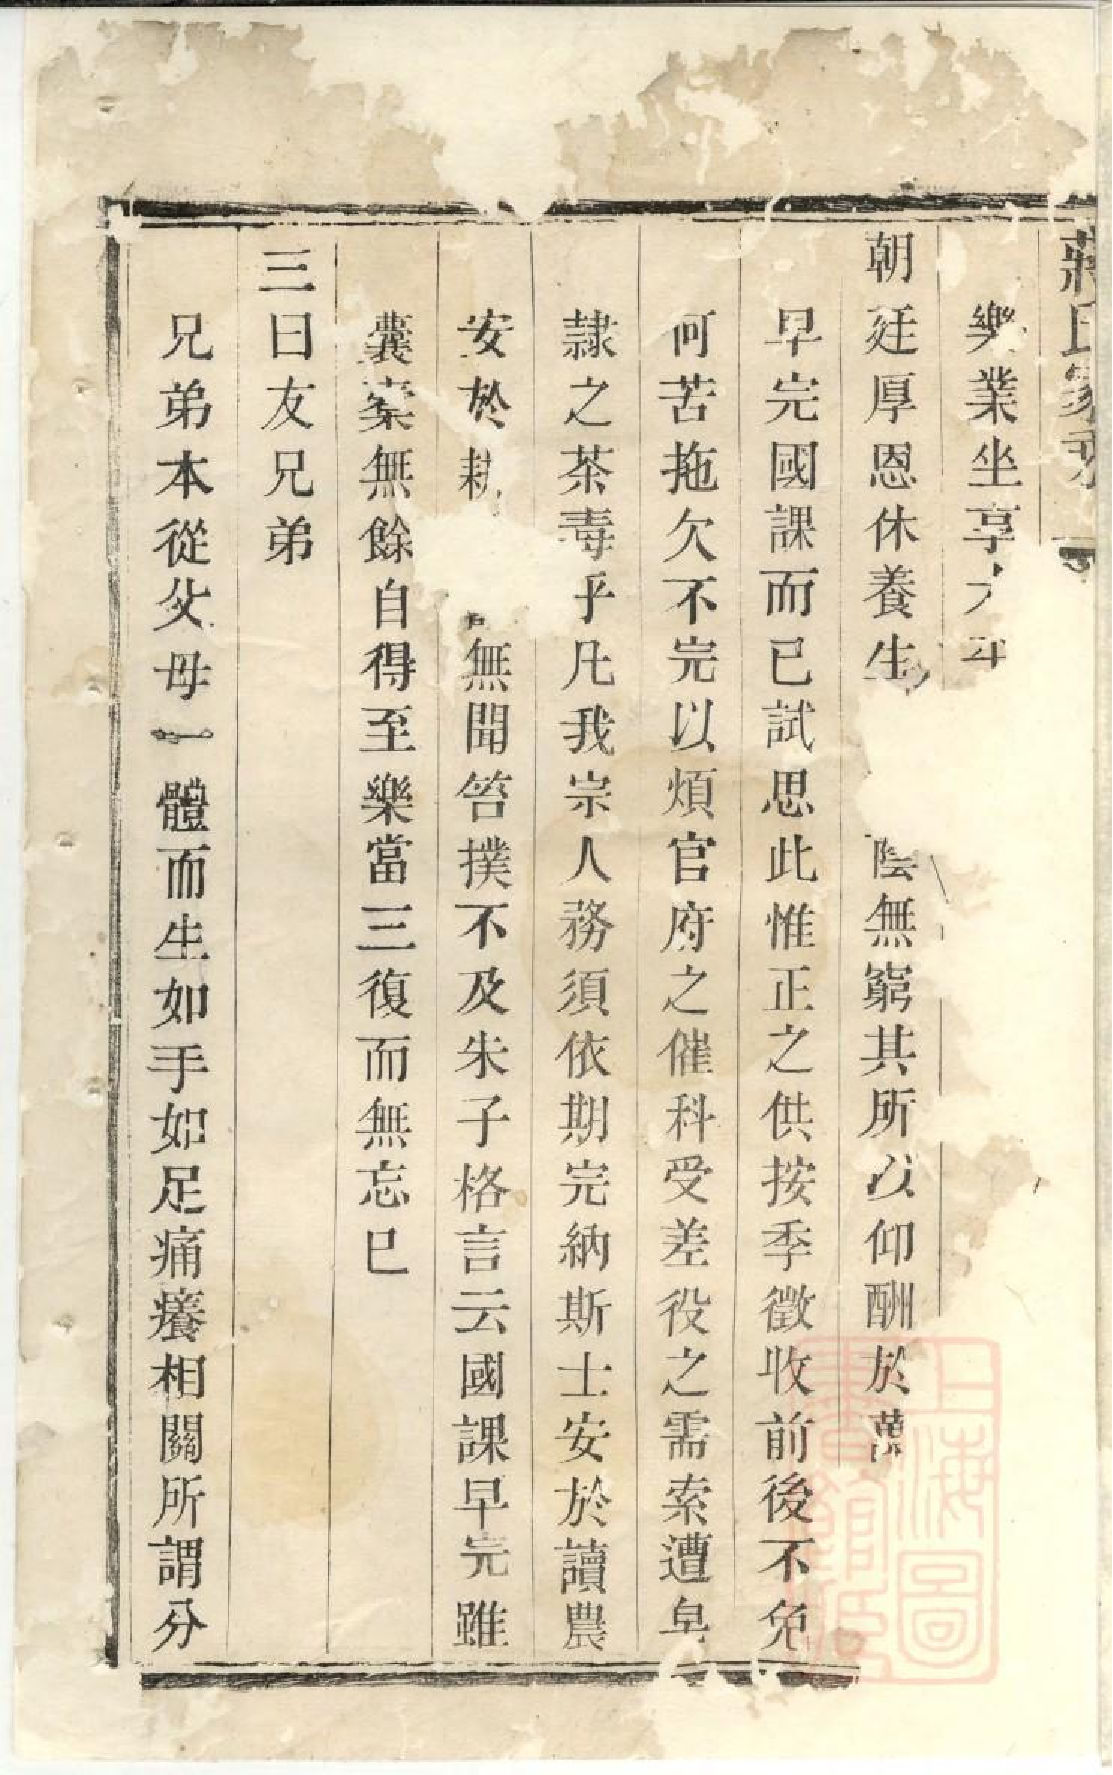 蔣氏家
樂業坐享
朝廷厚恩休養生陰無窮其所以仰酬於萬
早完國課而已試思此惟正之供按季徵收前後不免
何苦拖欠不完以煩官府之催科受差役之需索遭皁
隷之荼毒乎凡我宗人務須依期完納斯士安於讀農
安於耕無聞笞撲不及朱子格言云國課早完雖
囊槖無餘自得至樂當三復而無忘已
三曰友兄弟
兄弟本從父母一體而生如手如足痛癢相關所謂分
上海圖書館藏